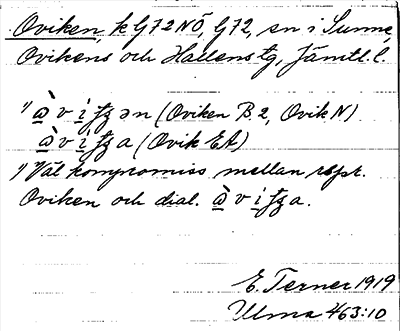 Oviken, k G72NÖ, G72, sn i Sunne,
Ovikens och Hallens tg, Jämtl. l.
1) ɷ̀vitʒən (Oviken B. 2, Ovik N)
ɷ̀vitʒa (Ovik EA)
1) Väl kompromiss mellan rspr.
Oviken och dial. ɷ̀vitʒa.
E. Terner 1919
Ulma 463:10